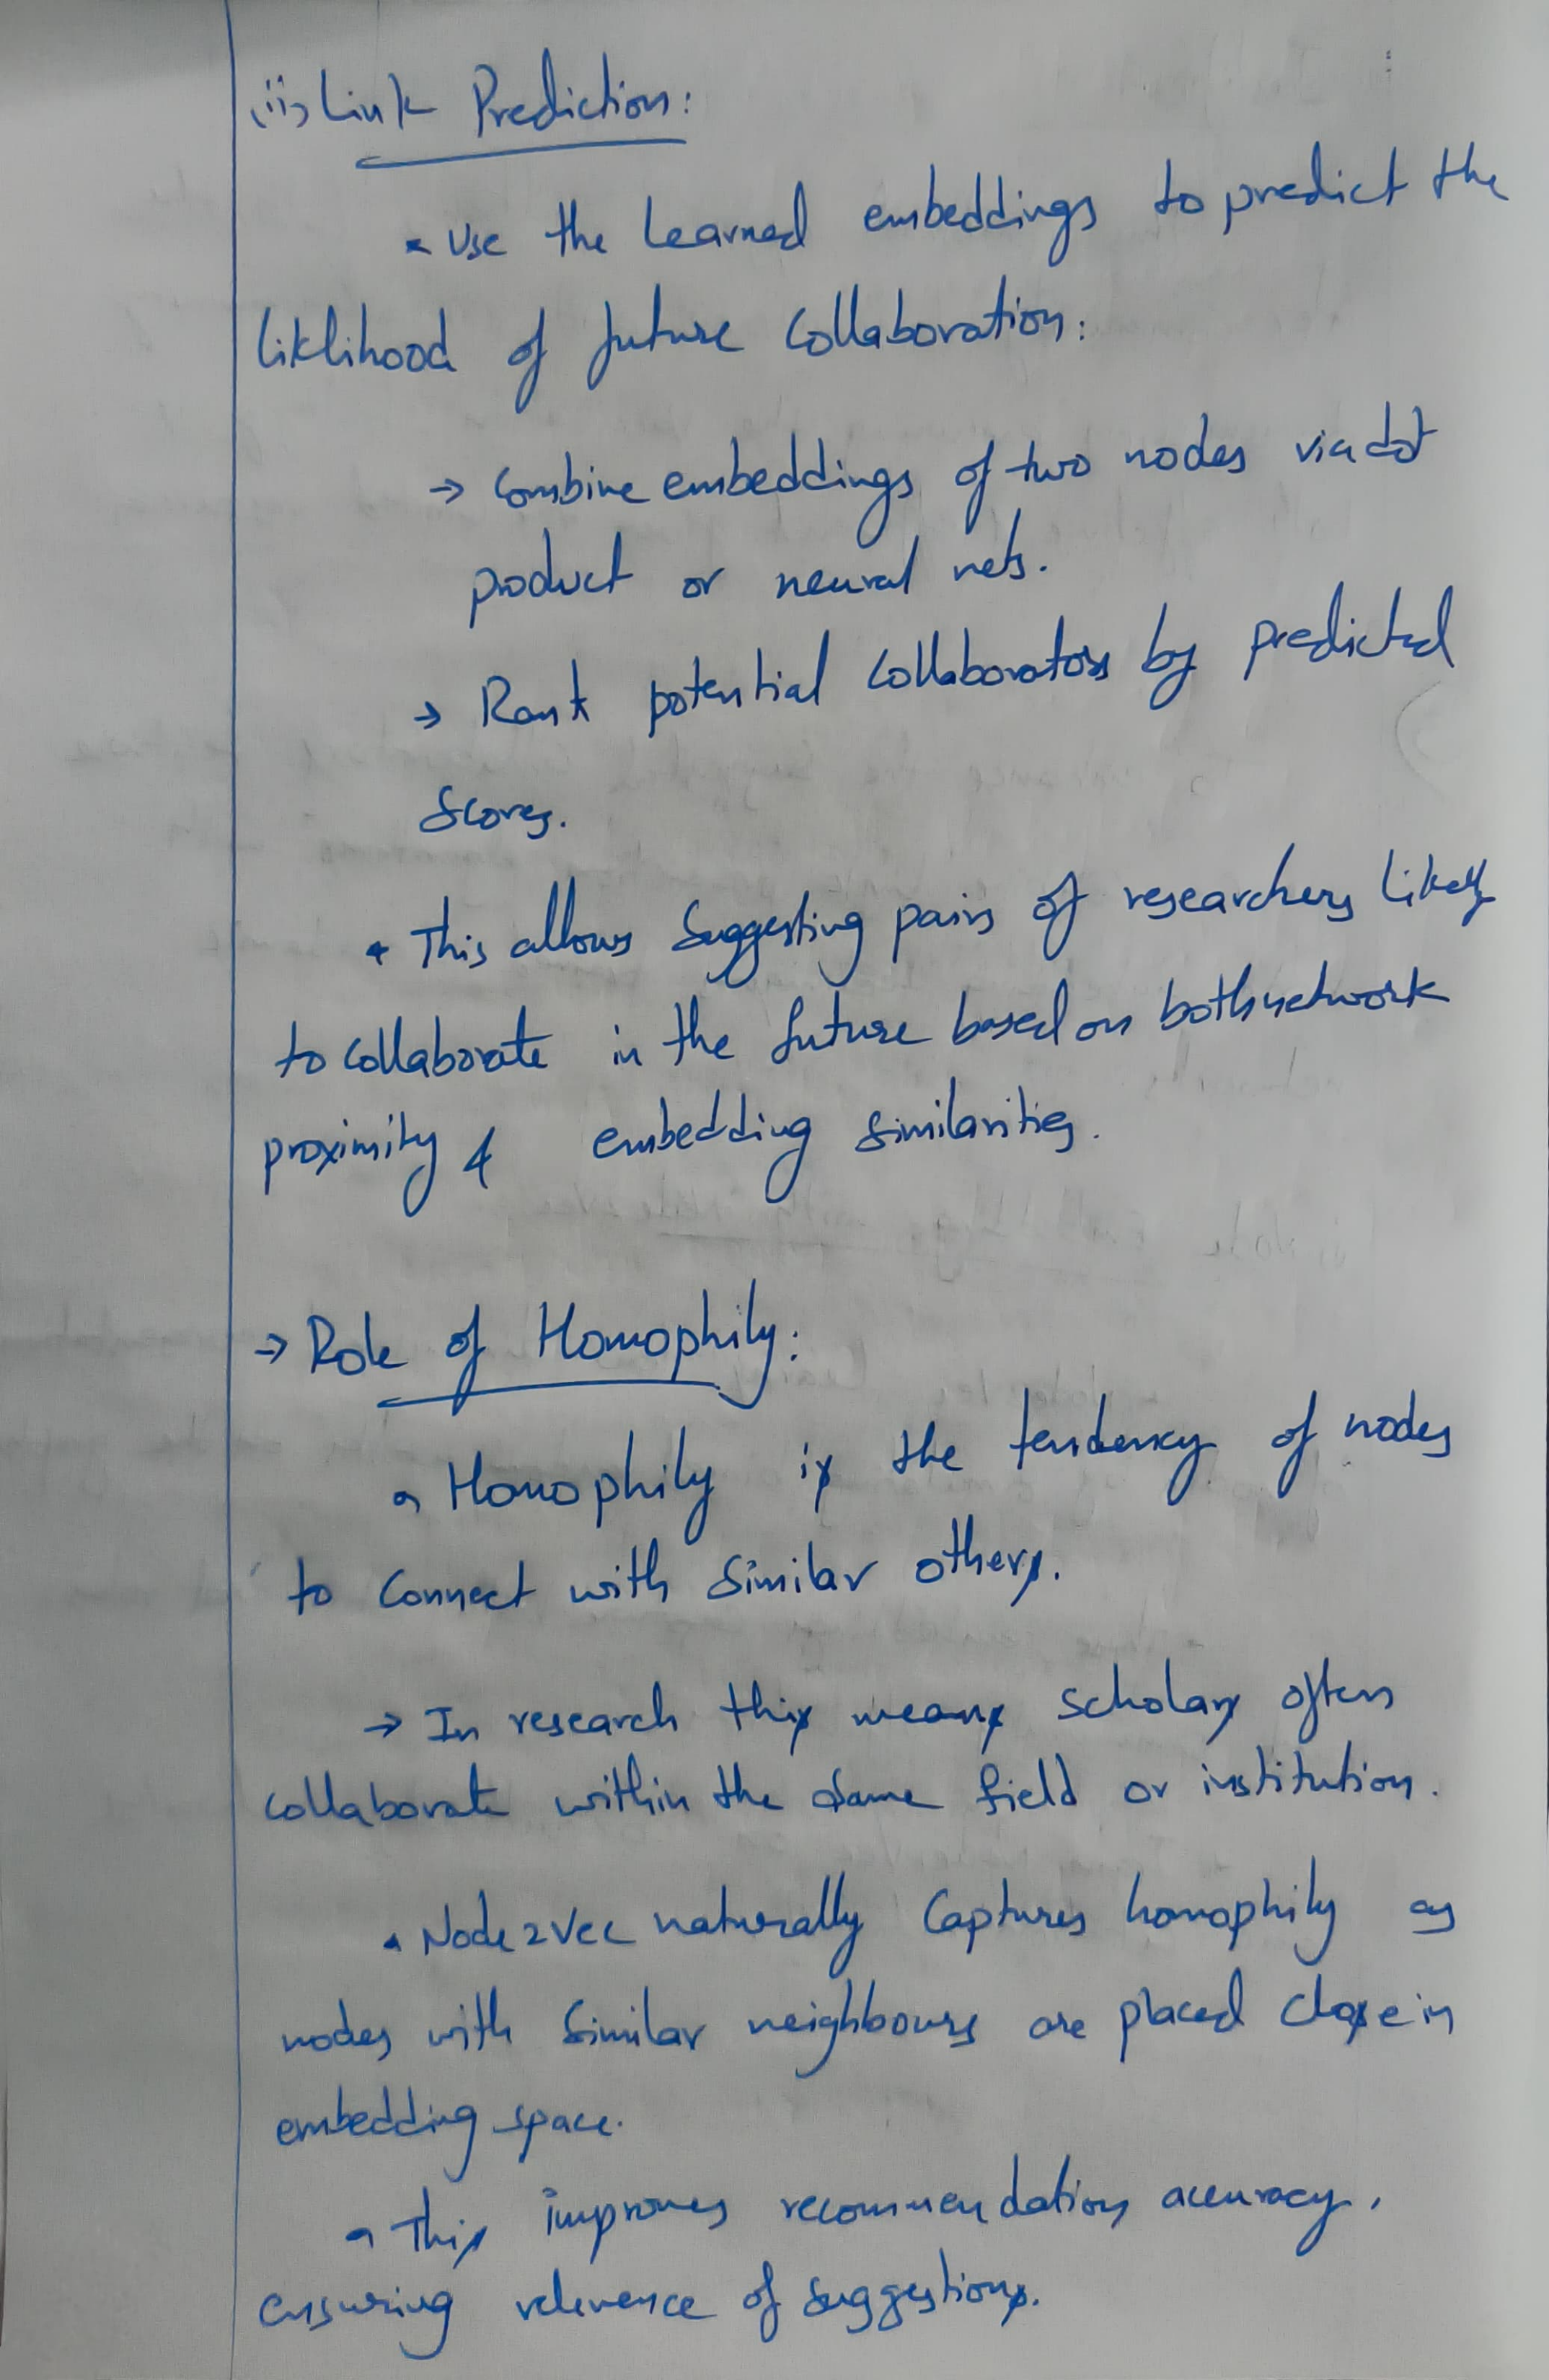 (ii) Link Prediction:
• Use the learned embeddings to predict the
liklihood of future collaboration:
→ Combine embeddings of two nodes via dot
product or neural nets.
→ Rank potential collaborators by predicted
scores.
• This allows suggesting pairs of researchers likely
to collaborate in the future based on both network
proximity & embedding similarities.
→ Role of Homophily:
• Homophily is the tendency of nodes
to connect with similar others.
→ In research this means scholars often
collaborate within the same field or institution.
• Node2Vec naturally captures homophily as
nodes with similar neighbours are placed close in
embedding space.
• This improves recommendation accuracy,
ensuring relevence of suggestions.